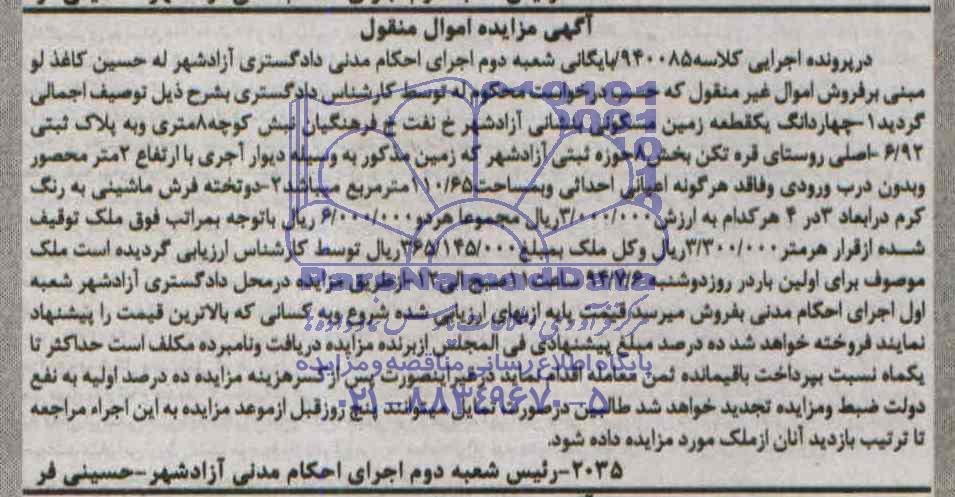 آگهی مزایده اموال منقول
درپرونده اجرایی کلاسه۹۴۰۰۸۵/بایگانی شعبه دوم اجرای احکام مدنی دادگستری آزادشهر له حسین کاغذ لو
مبنی برفروش اموال غیر منقول که حسب درخواست محکوم له توسط کارشناس دادگستری بشرح ذیل توصیف اجمالی
گردید۱-چهاردانگ یکقطعه زمین مسکونی بنشانی آزادشهر خ نفت خ فرهنگیان نبش کوچه۸متری وبه پلاک ثبتی
۶/۹۲ -اصلی روستای قره تکن بخش۸حوزه ثبتی آزادشهر که زمین مذکور به وسیله دیوار آجری با ارتفاع ۲متر محصور
وبدون درب ورودی وفاقد هرگونه اعیانی احداثی وبمساحت۱۱۰/۶۵مترمربع میباشد۲-دوتخته فرش ماشینی به رنگ
کرم درابعاد ۳در ۴ هرکدام به ارزش۳/۰۰۰/۰۰۰ریال مجموعا هردو۶/۰۰۰/۰۰۰ ریال باتوجه بمراتب فوق ملک توقیف
شده ازقرار هرمتر۳/۳۰۰/۰۰۰ریال وکل ملک بمبلغ۳۶۵/۱۴۵/۰۰۰ریال توسط کارشناس ارزیابی گردیده است ملک
موصوف برای اولین باردر روزدوشنبه ۹۴/۷/۶ ساعت۱۱صبح الی ۱۲ ازطریق مزایده درمحل دادگستری آزادشهر شعبه
اول اجرای احکام مدنی بفروش میرسد قیمت پایه ازبهای ارزیابی شده شروع وبه کسانی که بالاترین قیمت را پیشنهاد
نمایند فروخته خواهد شد ده درصد مبلغ پیشنهادی فی المجلس ازبرنده مزایده دریافت ونامبرده مکلف است حداکثر تا
یکماه نسبت بپرداخت باقیمانده ثمن معامله اقدام نماید درغیر اینصورت پس از کسرهزینه مزایده ده درصد اولیه به نفع
دولت ضبط ومزایده تجدید خواهد شد طالبین درصورت تمایل میتوانند پنج روزقبل ازموعد مزایده به این اجراء مراجعه
تا ترتیب بازدید آنان ازملک مورد مزایده داده شود.
۲۰۳۵-رئیس شعبه دوم اجرای احکام مدنی آزادشهر-حسینی فر
ParsNamadData
پایگاه اطلاع رسانی مناقصه و مزایده
۰۲۱-۸۸۳۴۹۶۷۰-۵